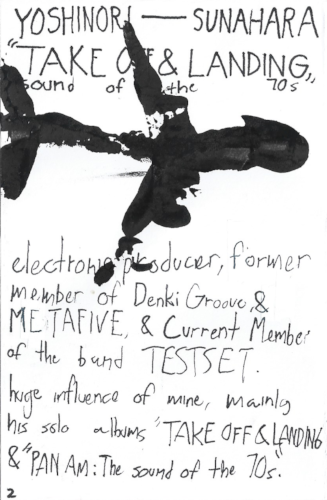 YOSHINORI — SUNAHARA
"TAKE OFF & LANDING"
sound of the 70s
electronic producer, former
member of Denki Groove, &
METAFIVE, & Current Member
of the band TESTSET.
huge influence of mine, mainly
his solo albums "TAKE OFF & LANDING
& "PAN AM: The sound of the 70s."
2